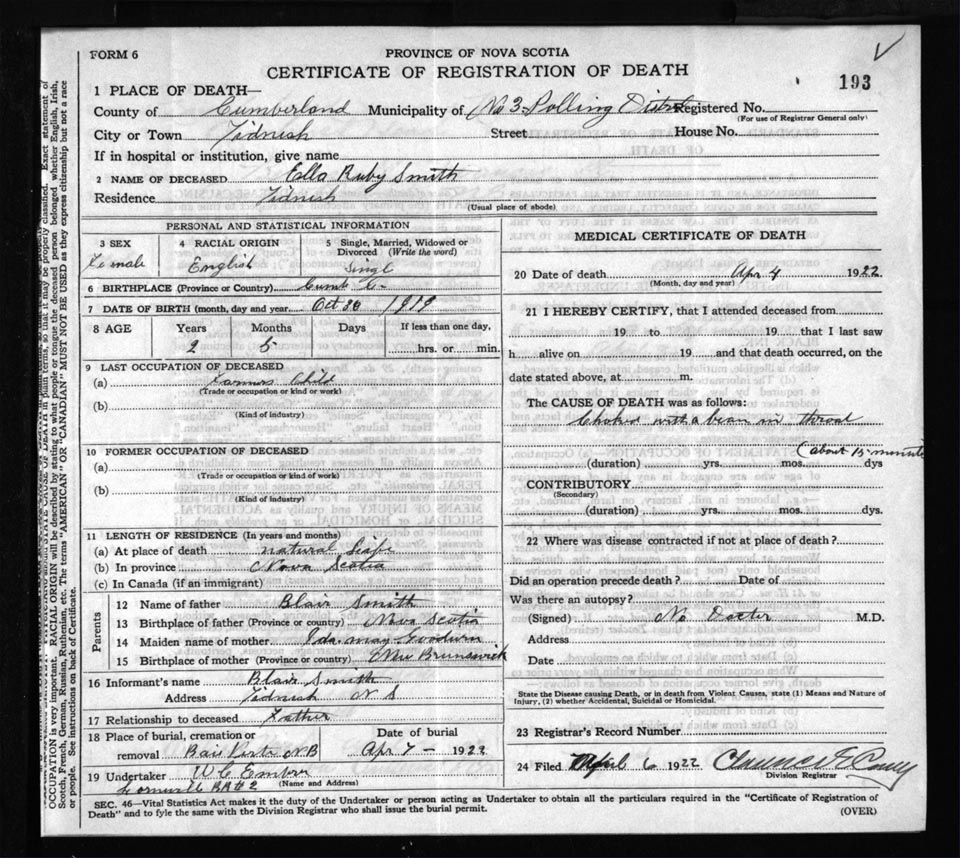 FORM 6
PROVINCE OF NOVA SCOTIA
CERTIFICATE OF REGISTRATION OF DEATH
193
1 PLACE OF DEATH—
County of Cumberland Municipality of No 3 Polling Registered No.
(For use of Registrar General only)
City or Town Tidnish Street House No.
If in hospital or institution, give name
2 NAME OF DECEASED Ella Ruby Smith
Residence Tidnish
(Usual place of abode)
PERSONAL AND STATISTICAL INFORMATION
3 SEX 4 RACIAL ORIGIN 5 Single, Married, Widowed or Divorced (Write the word)
Female English Singl
6 BIRTHPLACE (Province or Country) Cumb Co
7 DATE OF BIRTH (month, day and year) Oct 1919
8 AGE Years Months Days If less than one day,
2 5 hrs. or min.
9 LAST OCCUPATION OF DECEASED
(a) Farmers Child
(Trade or occupation or kind of work)
(b)
(Kind of industry)
10 FORMER OCCUPATION OF DECEASED
(a)
(Trade or occupation or kind of work)
(b)
(Kind of industry)
11 LENGTH OF RESIDENCE (In years and months)
(a) At place of death natural
(b) In province Nova Scotia
(c) In Canada (if an immigrant)
Parents
12 Name of father Blair Smith
13 Birthplace of father (Province or country) Nova Scotia
14 Maiden name of mother Ida may Goodwin
15 Birthplace of mother (Province or country) New Brunswick
16 Informant's name Blair Smith
Address Tidnish N S
17 Relationship to deceased Father
18 Place of burial, cremation or removal Baie Verte NB
Date of burial Apr 7 - 1922
19 Undertaker W C
(Name and Address)
RR # 2
MEDICAL CERTIFICATE OF DEATH
20 Date of death Apr 4 1922
(Month, day and year)
21 I HEREBY CERTIFY, that I attended deceased from
19 to 19 that I last saw
h alive on 19 and that death occurred, on the
date stated above, at m.
The CAUSE OF DEATH was as follows:
Choked with a bean in throat
(about 15 minuts
(duration) yrs. mos. dys
CONTRIBUTORY
(Secondary)
(duration) yrs. mos. dys.
22 Where was disease contracted if not at place of death?
Did an operation precede death? Date of
Was there an autopsy?
(Signed) No Doctor M.D.
Address
Date
State the Disease causing Death, or in death from Violent Causes, state (1) Means and Nature of
Injury, (2) whether Accidental, Suicidal or Homicidal.
23 Registrar's Record Number
24 Filed April 6 1922 Clarence E
Division Registrar
SEC. 46—Vital Statistics Act makes it the duty of the Undertaker or person acting as Undertaker to obtain all the particulars required in the "Certificate of Registration of
Death" and to fyle the same with the Division Registrar who shall issue the burial permit.
(OVER)
OCCUPATION is very important. RACIAL ORIGIN will be described by stating to what people or tongue the deceased person belonged whether English, Irish,
Scotch, French, German, Russian, Ruthenian, etc. The terms "AMERICAN" OR "CANADIAN" MUST NOT BE USED as they express citizenship but not a race
or people. See instructions on back of Certificate.